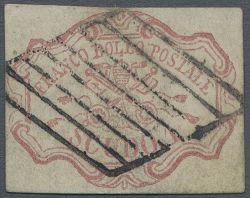 FRANCO BOLLO POSTALE
SCUDO